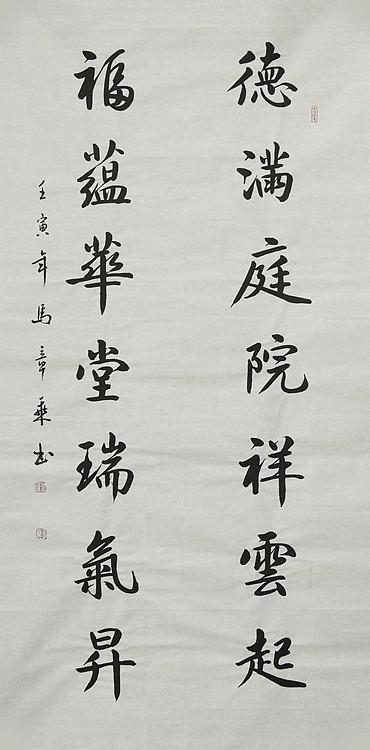 德滿庭院祥雲起
福蘊華堂瑞氣昇
壬寅年馬章乘书